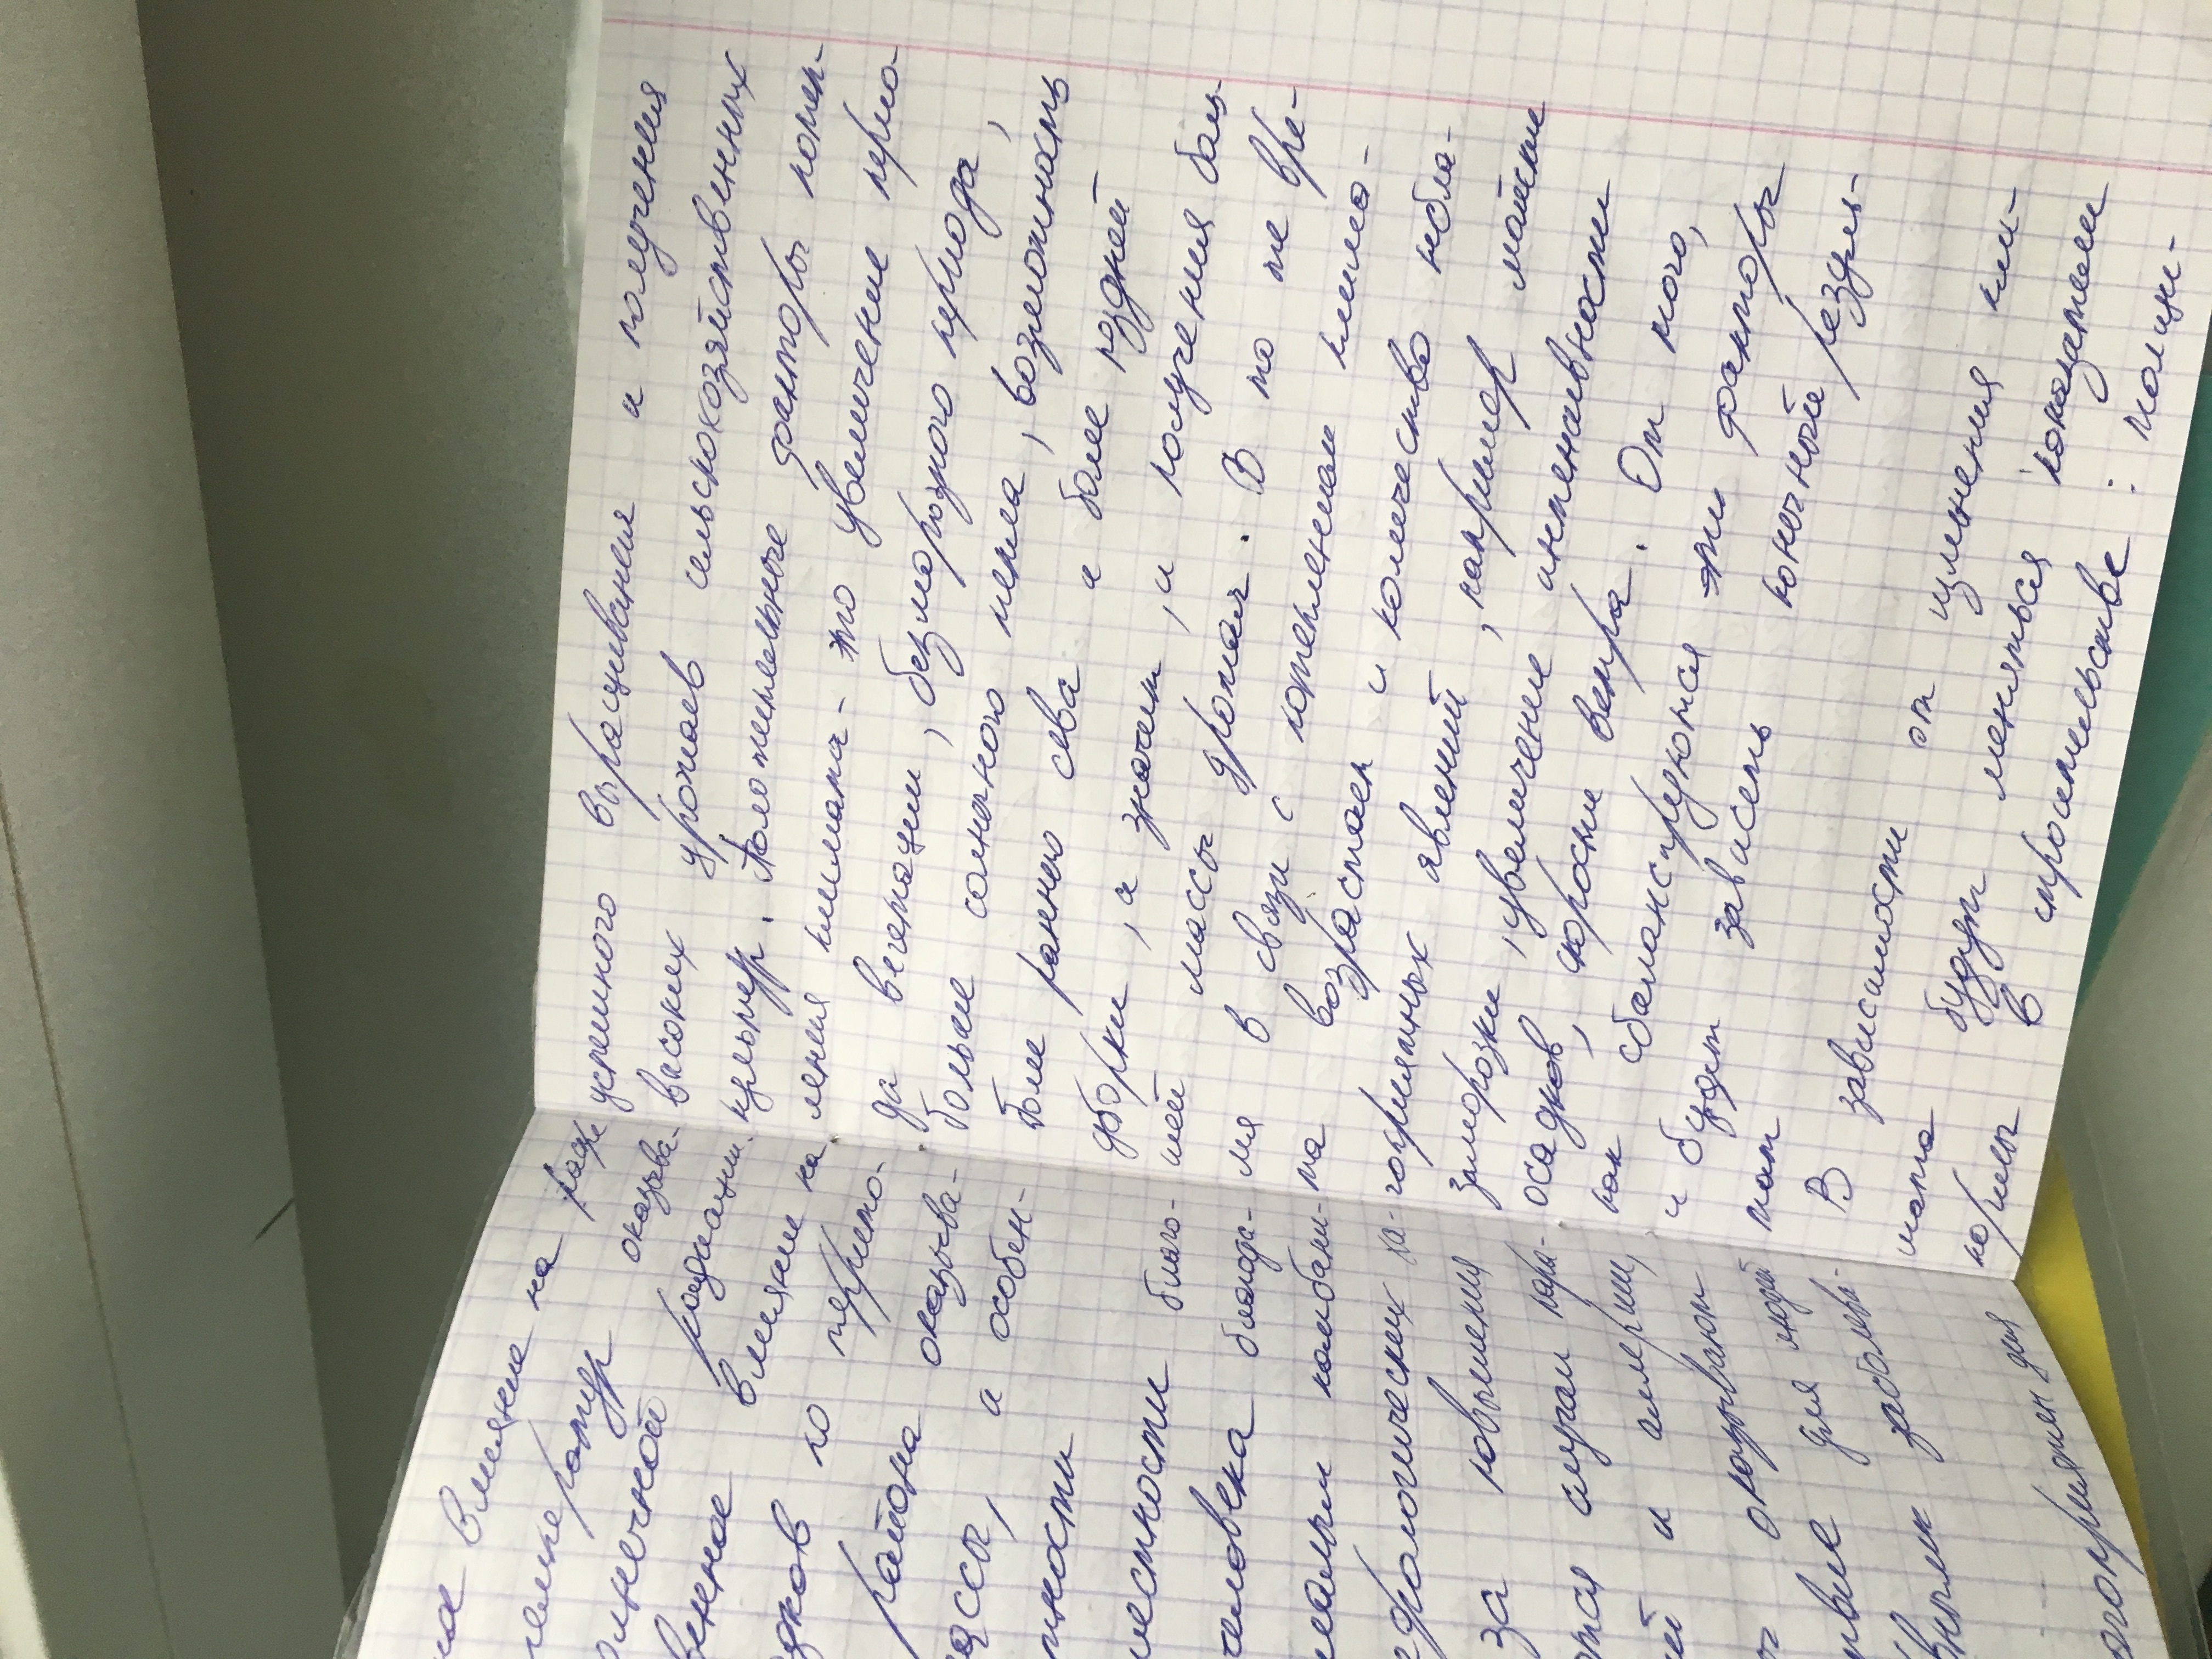 на влияние на разв
температур оказыва-
олнечной радиации.
венное влияние на
дков по террито-
района оказыва-
ссы, а особен-
ности
местности благо-
человека благода-
комбани-
дрологических ха-
за повышения
тся случаи пора-
ей и аллергии,
оказывают
для людей
заболева-
благоприятен для
успешного выращивания и получения
высоких урожаев сельскохозяйственных
культур. Положительные факторы потеп-
ления климата - это увеличение перио-
да вегетации, безморозного периода,
больше солнечного тепла, возможность
более раннего сева и более поздней
уборки, а значит, и получения боль-
шей массы урожая. В то же вре-
мя в связи с потеплением клима-
та возрастает и количество небла-
гоприятных явлений, например майские
заморозки, увеличение интенсивности
осадков, скорости ветра. От того,
как сбалансируются эти факторы
и будет зависеть конечный резуль-
тат
В зависимости от изменения кли-
мата будут меняться концепции
нормы в строительстве: толщи-